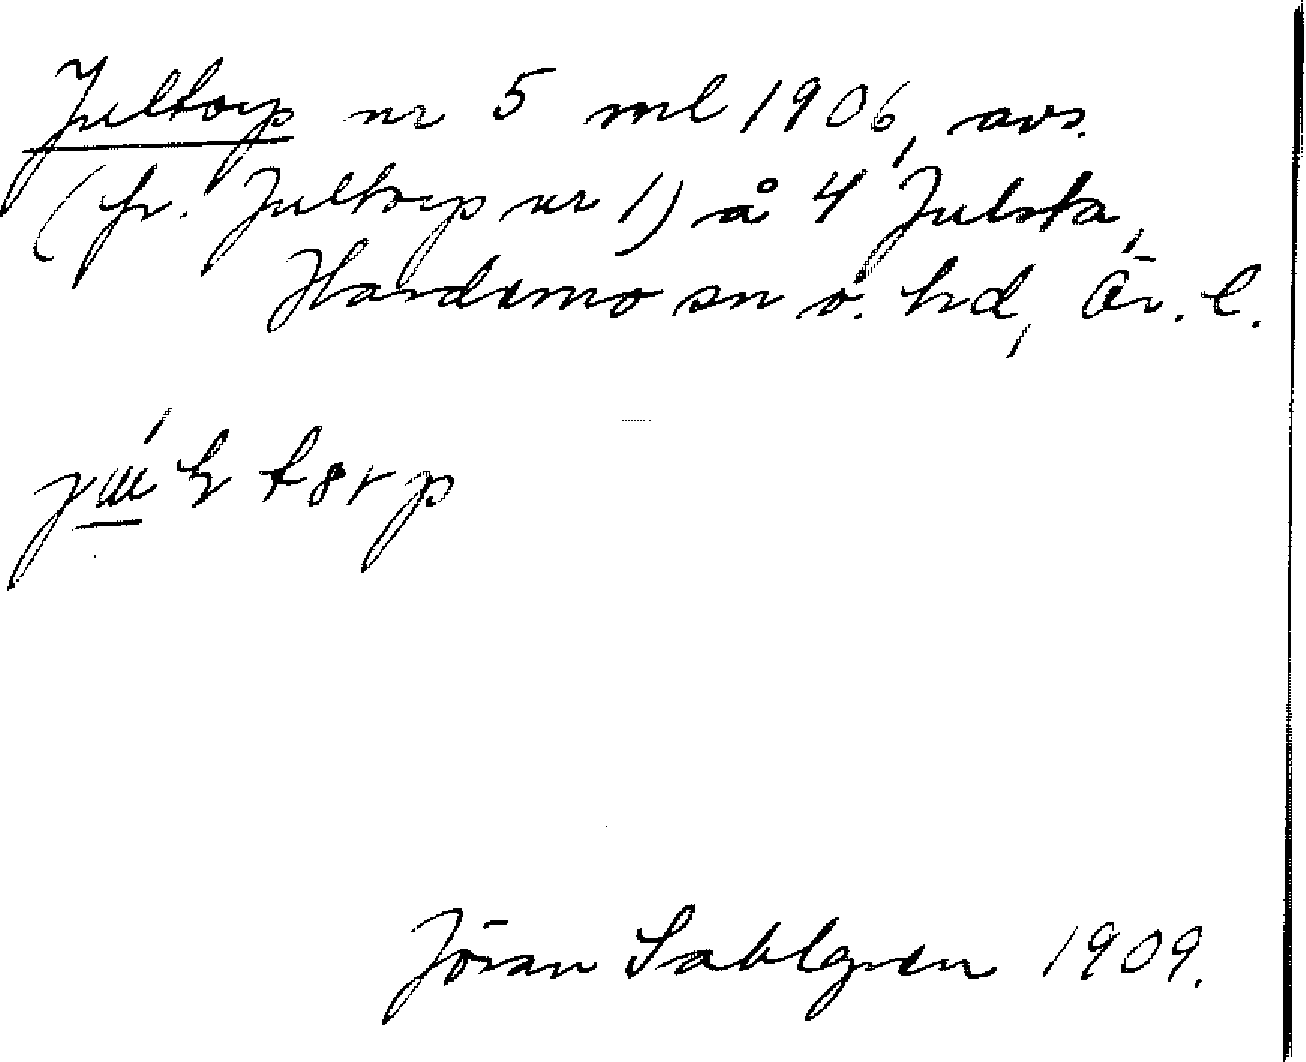 Jultorp nr 5 ml 1906, avs.
(fr. Jultorp nr 1) å 4 Julsta,
Hardemo sn o. hd, Ör. l.
torp
Jöran Sahlgren 1909.